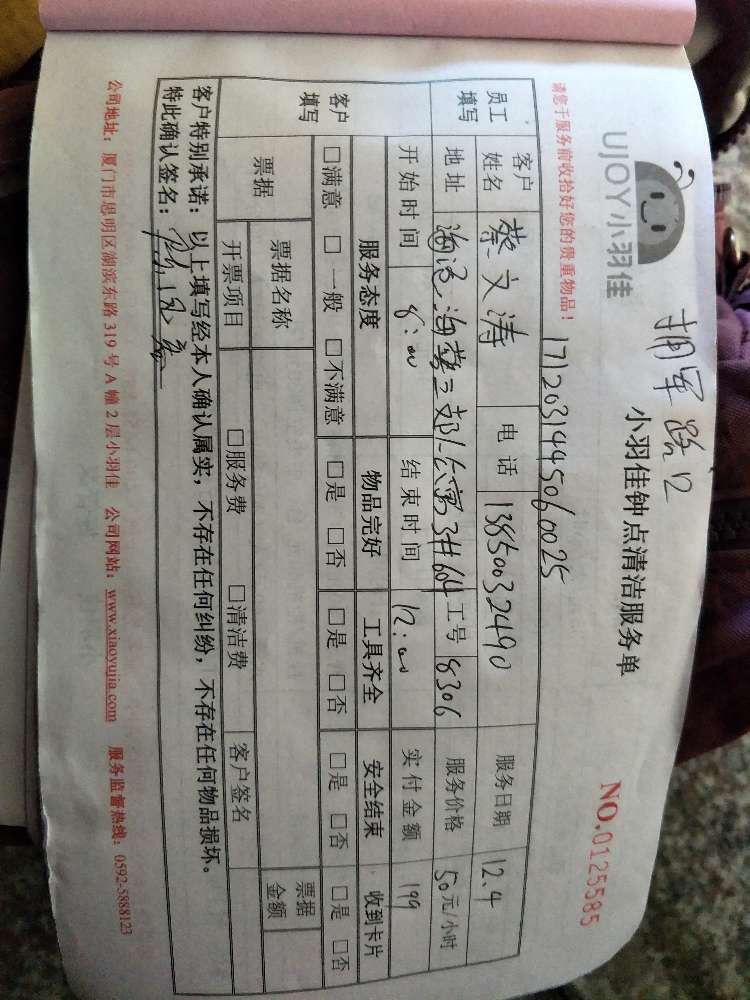 拥军路12
UJOY小羽佳
小羽佳钟点清洁服务单
NO.0125585
请您于服务前收拾好您的贵重物品！
1712031445060025
员工填写
客户姓名 蔡文涛 电话 13850032490 服务日期 12.4
地址 三 3#604 工号 8306 服务价格 50元/小时
开始时间 8:00 结束时间 12:00 实付金额 199
客户填写
服务态度 物品完好 工具齐全 安全结束 收到卡片
□满意 □一般 □不满意 □是 □否 □是 □否 □是 □否 □是 □否
票据 票据名称 票据金额
开票项目 □服务费 □清洁费 客户签名
客户特别承诺：以上填写经本人确认属实，不存在任何纠纷，不存在任何物品损坏。
特此确认签名：
公司地址：厦门市思明区湖滨东路319号A幢2层小羽佳 公司网站：www.xiaoyujia.com 服务监督热线：0592-5888123